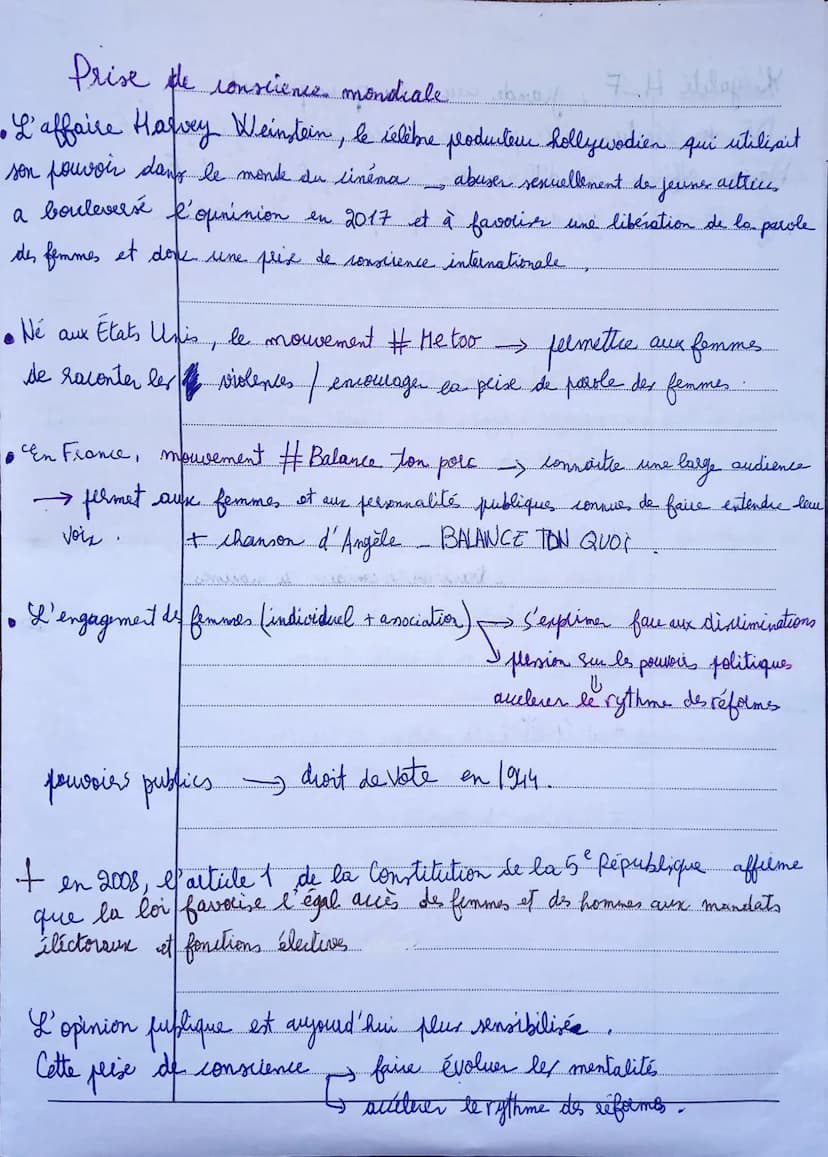 Prise de conscience mondiale
• L'affaire Harvey Weinstein, le célèbre producteur hollywodien qui utilisait
son pouvoir dans le monde du cinéma → abuser sexuellement de jeunes actrices
a bouleversé l'opuninion en 2017 et à favoriser une libération de la parole
des femmes et donc une prise de conscience internationale.
• Né aux États Unis, le mouvement # Metoo → permettre aux femmes
de raconter les violences / encourager la prise de parole des femmes.
• En France, mouvement # Balance ton porc → connaître une large audience
→ permet aux femmes et aux personnalités publiques connues de faire entendre leur
voix. + chanson d'Angèle - BALANCE TON QUOI.
• L'engagement des femmes (individuel + association) → S'exprimer face aux discriminations
↘ pression sur les pouvoirs politiques
⇓
accelerer le rythme des réformes
pouvoirs publics → droit de vote en 1944.
+ en 2008, l'article 1 de la Constitution de la 5e République affirme
que la loi favorise l'égal accès des femmes et des hommes aux mandats
éléctoraux et fonctions électives
L'opinion publique est aujourd'hui plus sensibilisée.
Cette prise de conscience → faire évoluer les mentalités
↳ accélerer le rythme des réformes.